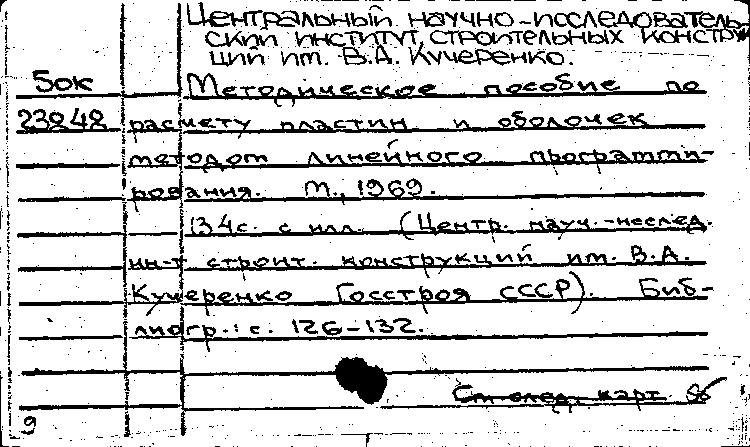 Центральный научно-исследователь-
ский институт строительных конструк
ций им. В.А. Кучеренко.
5ок Методическое пособие по
23848 расчету пластин и оболочек
методом линейного программи-
рования. М., 1969.
134с. с илл. (Центр. науч.-исслед.
ин-т строит. конструкций им. В.А.
Кучеренко Госстроя СССР). Биб-
лиогр.: с. 126-132.
См. след. карт.
9